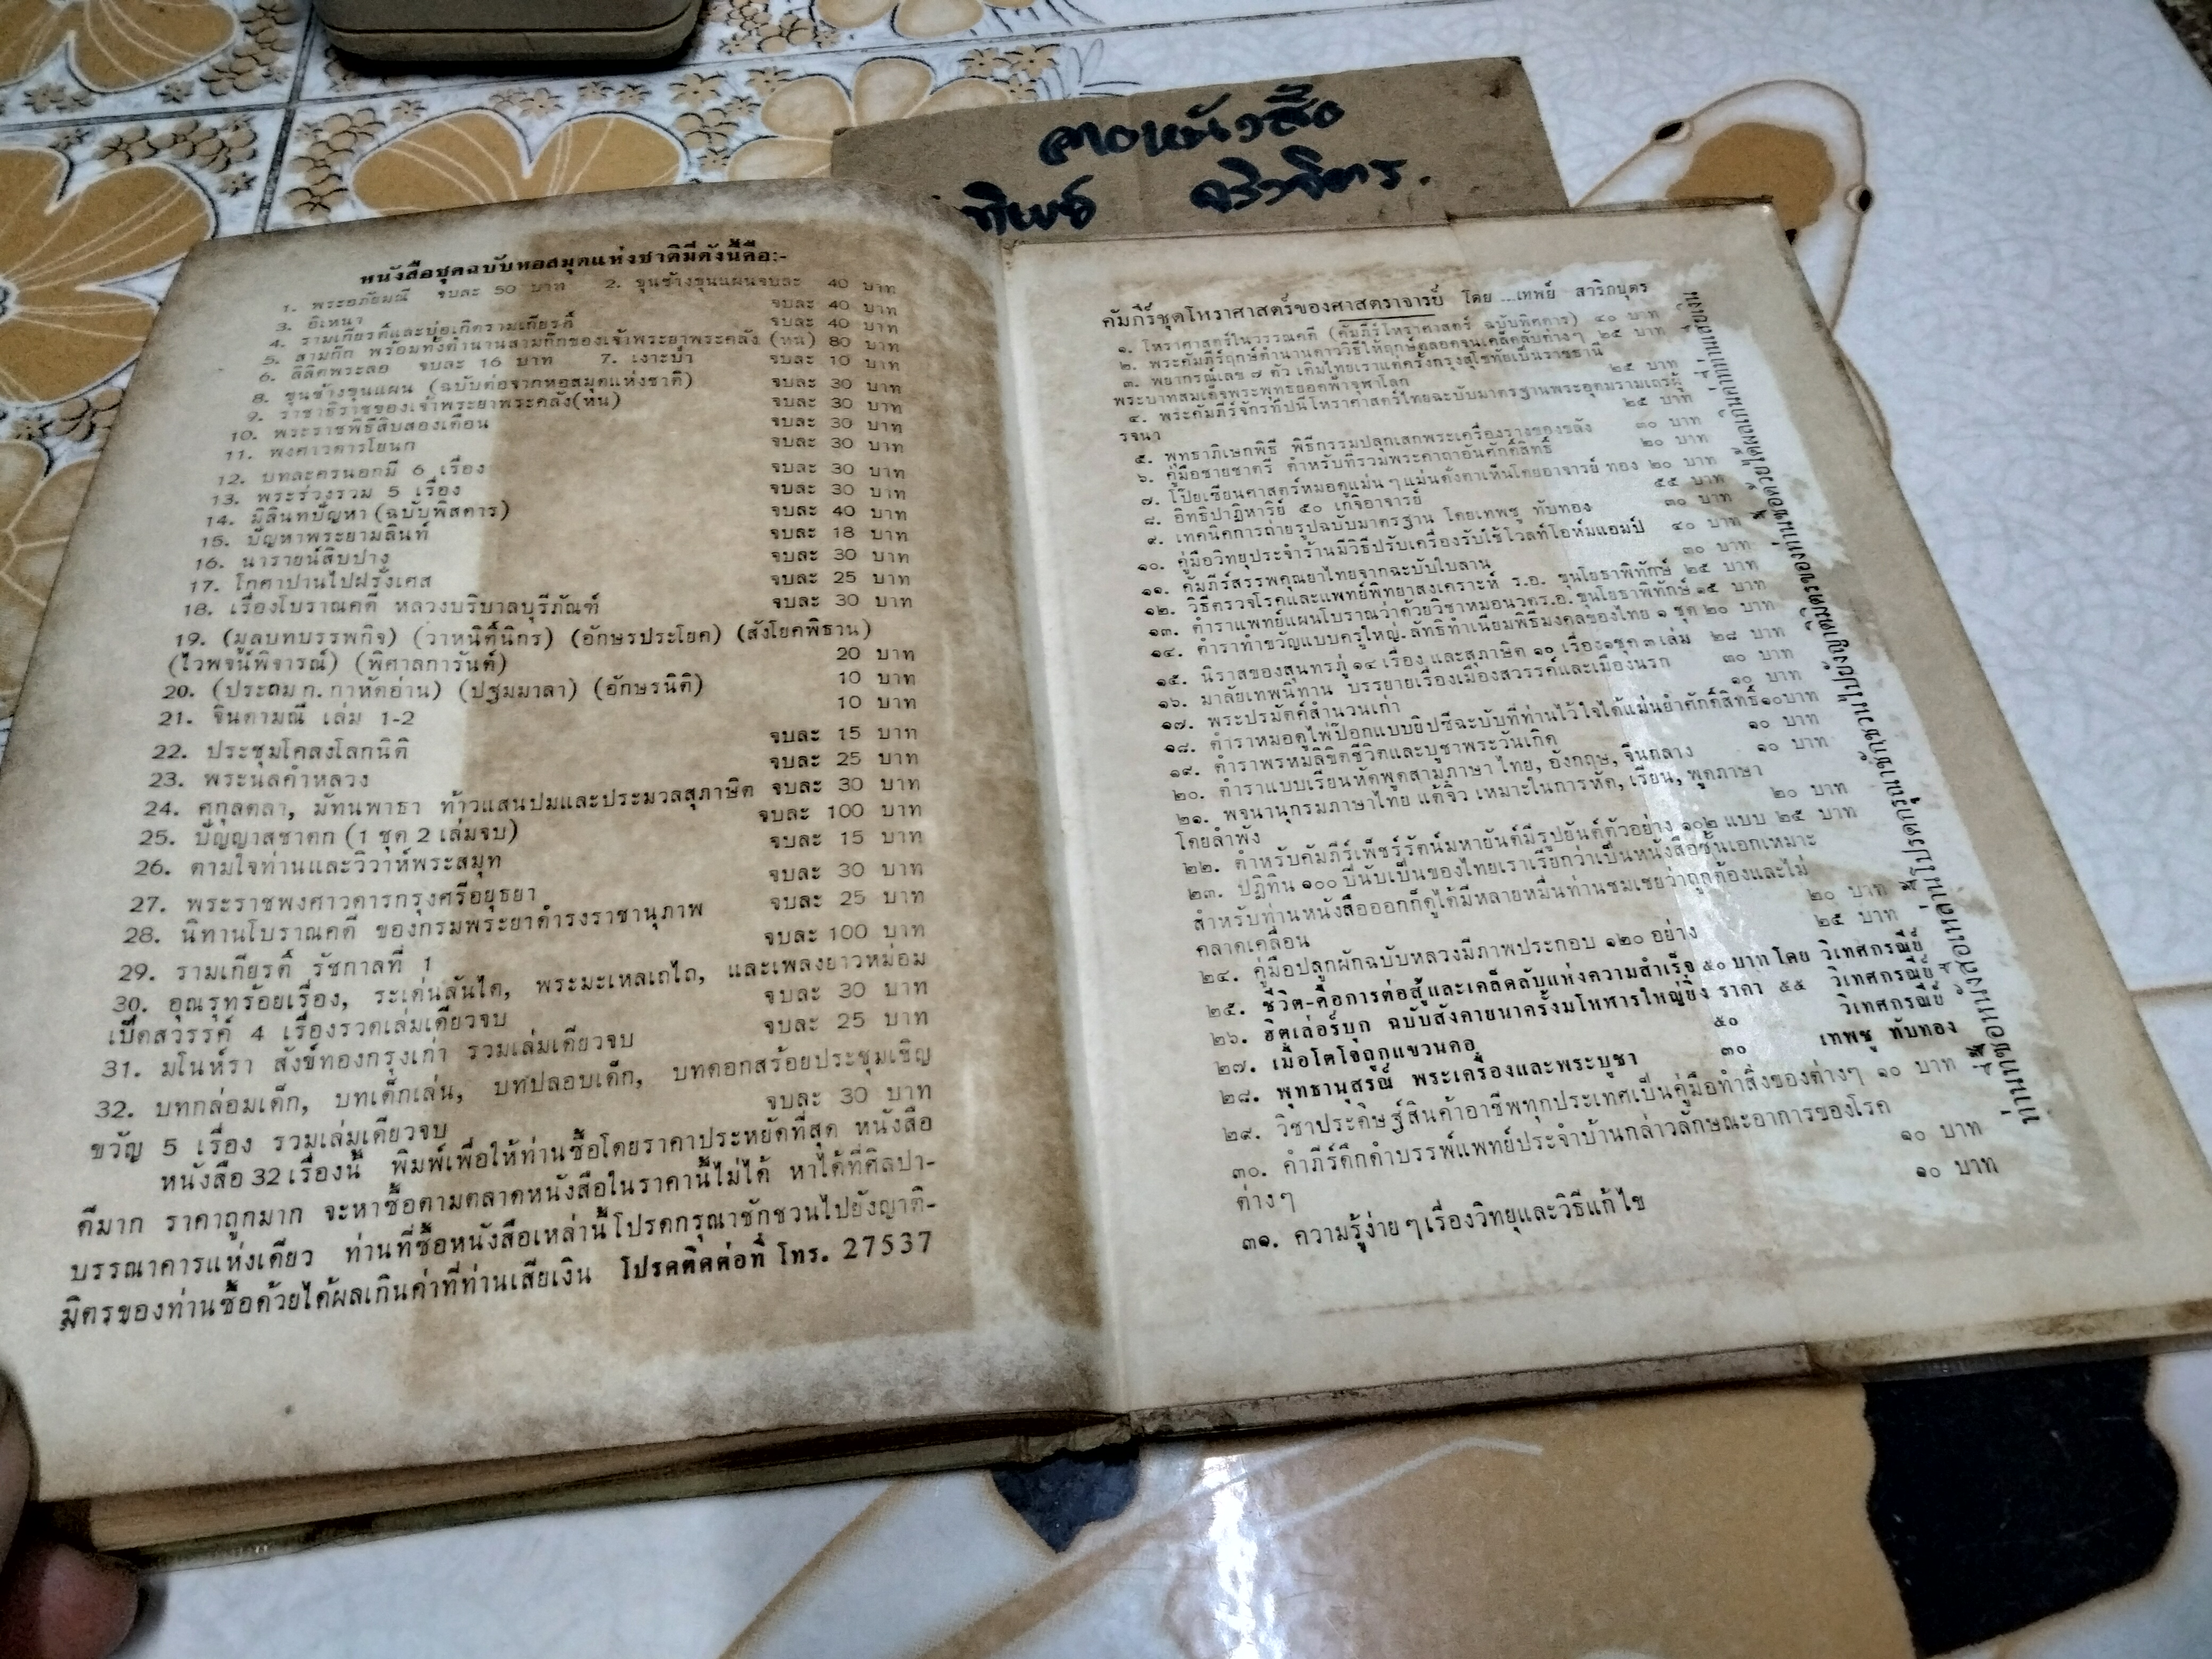 หนังสือชุดฉบับหอสมุดแห่งชาติมีดังนี้คือ:-
1. พระอภัยมณี จบละ 50 บาท 2. ขุนช้างขุนแผนจบละ 40 บาท
3. อิเหนา จบละ 40 บาท
4. รามเกียรติ์และบ่อเกิดรามเกียรติ์ จบละ 40 บาท
5. สามก๊ก พร้อมทั้งตำนานสามก๊กของเจ้าพระยาพระคลัง (หน) 80 บาท
6. ลิลิตพระลอ จบละ 16 บาท 7. เงาะป่า จบละ 10 บาท
8. ขุนช้างขุนแผน (ฉบับต่อจากหอสมุดแห่งชาติ) จบละ 30 บาท
9. ราชาธิราชของเจ้าพระยาพระคลัง(หน) จบละ 30 บาท
10. พระราชพิธีสิบสองเดือน จบละ 30 บาท
11. พงศาวดารโยนก จบละ 30 บาท
12. บทละครนอกมี 6 เรื่อง จบละ 30 บาท
13. พระร่วงรวม 5 เรื่อง จบละ 30 บาท
14. มิลินทปัญหา (ฉบับพิสดาร) จบละ 40 บาท
15. ปัญหาพระยามลินท์ จบละ 18 บาท
16. นารายน์สิบปาง จบละ 30 บาท
17. โกศาปานไปฝรั่งเศส จบละ 25 บาท
18. เรื่องโบราณคดี หลวงบริบาลบุรีภัณฑ์ จบละ 30 บาท
19. (มูลบทบรรพกิจ) (วาหนิติ์นิกร) (อักษรประโยค) (สังโยคพิธาน)
(ไวพจน์พิจารณ์) (พิศาลการันต์) 20 บาท
20. (ประถม ก. กาหัดอ่าน) (ปฐมมาลา) (อักษรนิติ) 10 บาท
21. จินดามณี เล่ม 1-2 10 บาท
22. ประชุมโคลงโลกนิติ จบละ 15 บาท
23. พระนลคำหลวง จบละ 25 บาท
24. ศกุลตลา, มัทนพาธา ท้าวแสนปมและประมวลสุภาษิต จบละ 30 บาท
25. ปัญญาสชาดก (1 ชุด 2 เล่มจบ) จบละ 100 บาท
26. ตามใจท่านและวิวาห์พระสมุท จบละ 15 บาท
27. พระราชพงศาวดารกรุงศรีอยุธยา จบละ 30 บาท
28. นิทานโบราณคดี ของกรมพระยาดำรงราชานุภาพ จบละ 25 บาท
29. รามเกียรติ์ รัชกาลที่ 1 จบละ 100 บาท
30. อุณรุทร้อยเรื่อง, ระเด่นลันได, พระมะเหลเถไถ, และเพลงยาวหม่อม
เป็ดสวรรค์ 4 เรื่องรวดเล่มเดียวจบ จบละ 30 บาท
31. มโนห์รา สังข์ทองกรุงเก่า รวมเล่มเดียวจบ จบละ 25 บาท
32. บทกล่อมเด็ก, บทเด็กเล่น, บทปลอบเด็ก, บทดอกสร้อยประชุมเชิญ
ขวัญ 5 เรื่อง รวมเล่มเดียวจบ จบละ 30 บาท
หนังสือ 32 เรื่องนี้ พิมพ์เพื่อให้ท่านซื้อโดยราคาประหยัดที่สุด หนังสือ
ดีมาก ราคาถูกมาก จะหาซื้อตามตลาดหนังสือในราคานี้ไม่ได้ หาได้ที่ศิลปา-
บรรณาคารแห่งเดียว ท่านที่ซื้อหนังสือเหล่านี้โปรดกรุณาชักชวนไปยังญาติ-
มิตรของท่านซื้อด้วยได้ผลเกินค่าที่ท่านเสียเงิน โปรดติดต่อที่ โทร. 27537
คัมภีร์ชุดโหราศาสตร์ของศาสตราจารย์ โดย ...เทพย์ สาริกบุตร
๑. โหราศาสตร์ในวรรณคดี (คัมภีร์โหราศาสตร์ ฉบับพิศดาร) ๔๐ บาท
๒. พระคัมภีร์ฤกษ์ตำนานดาววิธีให้ฤกษ์ตลอดจนเคล็ดลับต่างๆ ๒๕ บาท
๓. พยากรณ์เลข ๗ ตัว เดิมไทยเราแต่ครั้งกรุงสุโขทัยเป็นราชธานี
พระบาทสมเด็จพระพุทธยอดฟ้าจุฬาโลก ๒๕ บาท
๔. พระคัมภีร์จักรทีปนีโหราศาสตร์ไทยฉะบับมาตรฐานพระอุดมรามเถรผู้
รจนา ๒๕ บาท
๕. พุทธาภิเษกพิธี พิธีกรรมปลุกเสกพระเครื่องรางของขลัง ๓๐ บาท
๖. คู่มือชายชาตรี ตำหรับที่รวมพระคาถาอันศักดิ์สิทธิ์ ๒๐ บาท
๗. โป๊ยเซียนศาสตร์หมอดูแม่น ๆ แม่นดั่งตาเห็นโดยอาจารย์ ทอง ๒๐ บาท
๘. อิทธิปาฏิหาริย์ ๕๐ เกจิอาจารย์ ๕๕ บาท
๙. เทคนิคการถ่ายรูปฉบับมาตรฐาน โดยเทพชู ทับทอง ๓๐ บาท
๑๐. คู่มือวิทยุประจำร้านมีวิธีปรับเครื่องรับใช้โวลท์โอห์มแอมป์ ๔๐ บาท
๑๑. คัมภีร์สรรพคุณยาไทยจากฉะบับใบลาน ๓๐ บาท
๑๒. วิธีตรวจโรคและแพทย์พิทยาสงเคราะห์ ร.อ. ขุนโยธาพิทักษ์ ๒๕ บาท
๑๓. ตำราแพทย์แผนโบราณว่าด้วยวิชาหมอนวดร.อ. ขุนโยธาพิทักษ์ ๑๕ บาท
๑๔. ตำราทำขวัญแบบครูใหญ่-ลัทธิทำเนียมพิธีมงคลของไทย ๑ ชุด ๒๐ บาท
๑๕. นิราสของสุนทรภู่ ๑๔ เรื่อง และสุภาษิต ๑๐ เรื่อง๑ชุด ๓ เล่ม ๒๘ บาท
๑๖. มาลัยเทพนิทาน บรรยายเรื่องเมืองสวรรค์และเมืองนรก ๓๐ บาท
๑๗. พระปรมัตค์สำนวนเก่า ๑๐ บาท
๑๘. ตำราหมอดูไพ่ป๊อกแบบยิปซีฉะบับที่ท่านไว้ใจได้แม่นยำศักดิ์สิทธิ์๑๐บาท
๑๙. ตำราพรหมลิขิตชีวิตและบูชาพระวันเกิด ๑๐ บาท
๒๐. ตำราแบบเรียนหัดพูดสามภาษา ไทย, อังกฤษ, จีนกลาง ๑๐ บาท
๒๑. พจนานุกรมภาษาไทย แต้จิ๋ว เหมาะในการหัด, เรียน, พูดภาษา
โดยลำพัง ๒๐ บาท
๒๒. ตำหรับคัมภีร์เพ็ชร์รัตน์มหายันต์มีรูปยันต์ตัวอย่าง ๑๐๒ แบบ ๒๕ บาท
๒๓. ปฏิทิน ๑๐๐ ปีนับเป็นของไทยเราเรียกว่าเป็นหนังสือชั้นเอกเหมาะ
สำหรับท่านหนังสือออกก็ดูได้มีหลายหมื่นท่านชมเชยว่าถูกต้องและไม่
คลาดเคลื่อน ๒๐ บาท
๒๔. คู่มือปลูกผักฉบับหลวงมีภาพประกอบ ๑๒๐ อย่าง ๒๕ บาท
๒๕. ชีวิต-คือการต่อสู้และเคล็ดลับแห่งความสำเร็จ ๕๐ บาท โดย วิเทศกรณีย์
๒๖. ฮิตเล่อร์บุก ฉบับสังคายนาครั้งมโหฬารใหญ่ยิ่ง ราคา ๕๕ วิเทศกรณีย์
๒๗. เมื่อโตโจถูกแขวนคอ ๕๐ วิเทศกรณีย์
๒๘. พุทธานุสรณ์ พระเครื่องและพระบูชา ๓๐ เทพชู ทับทอง
๒๙. วิชาประดิษฐ์สินค้าอาชีพทุกประเทศเป็นคู่มือทำสิ่งของต่างๆ ๑๐ บาท
๓๐. คำภีร์ดึกดำบรรพ์แพทย์ประจำบ้านกล่าวลักษณะอาการของโรค
ต่างๆ ๑๐ บาท
๓๑. ความรู้ง่าย ๆ เรื่องวิทยุและวิธีแก้ไข ๑๐ บาท